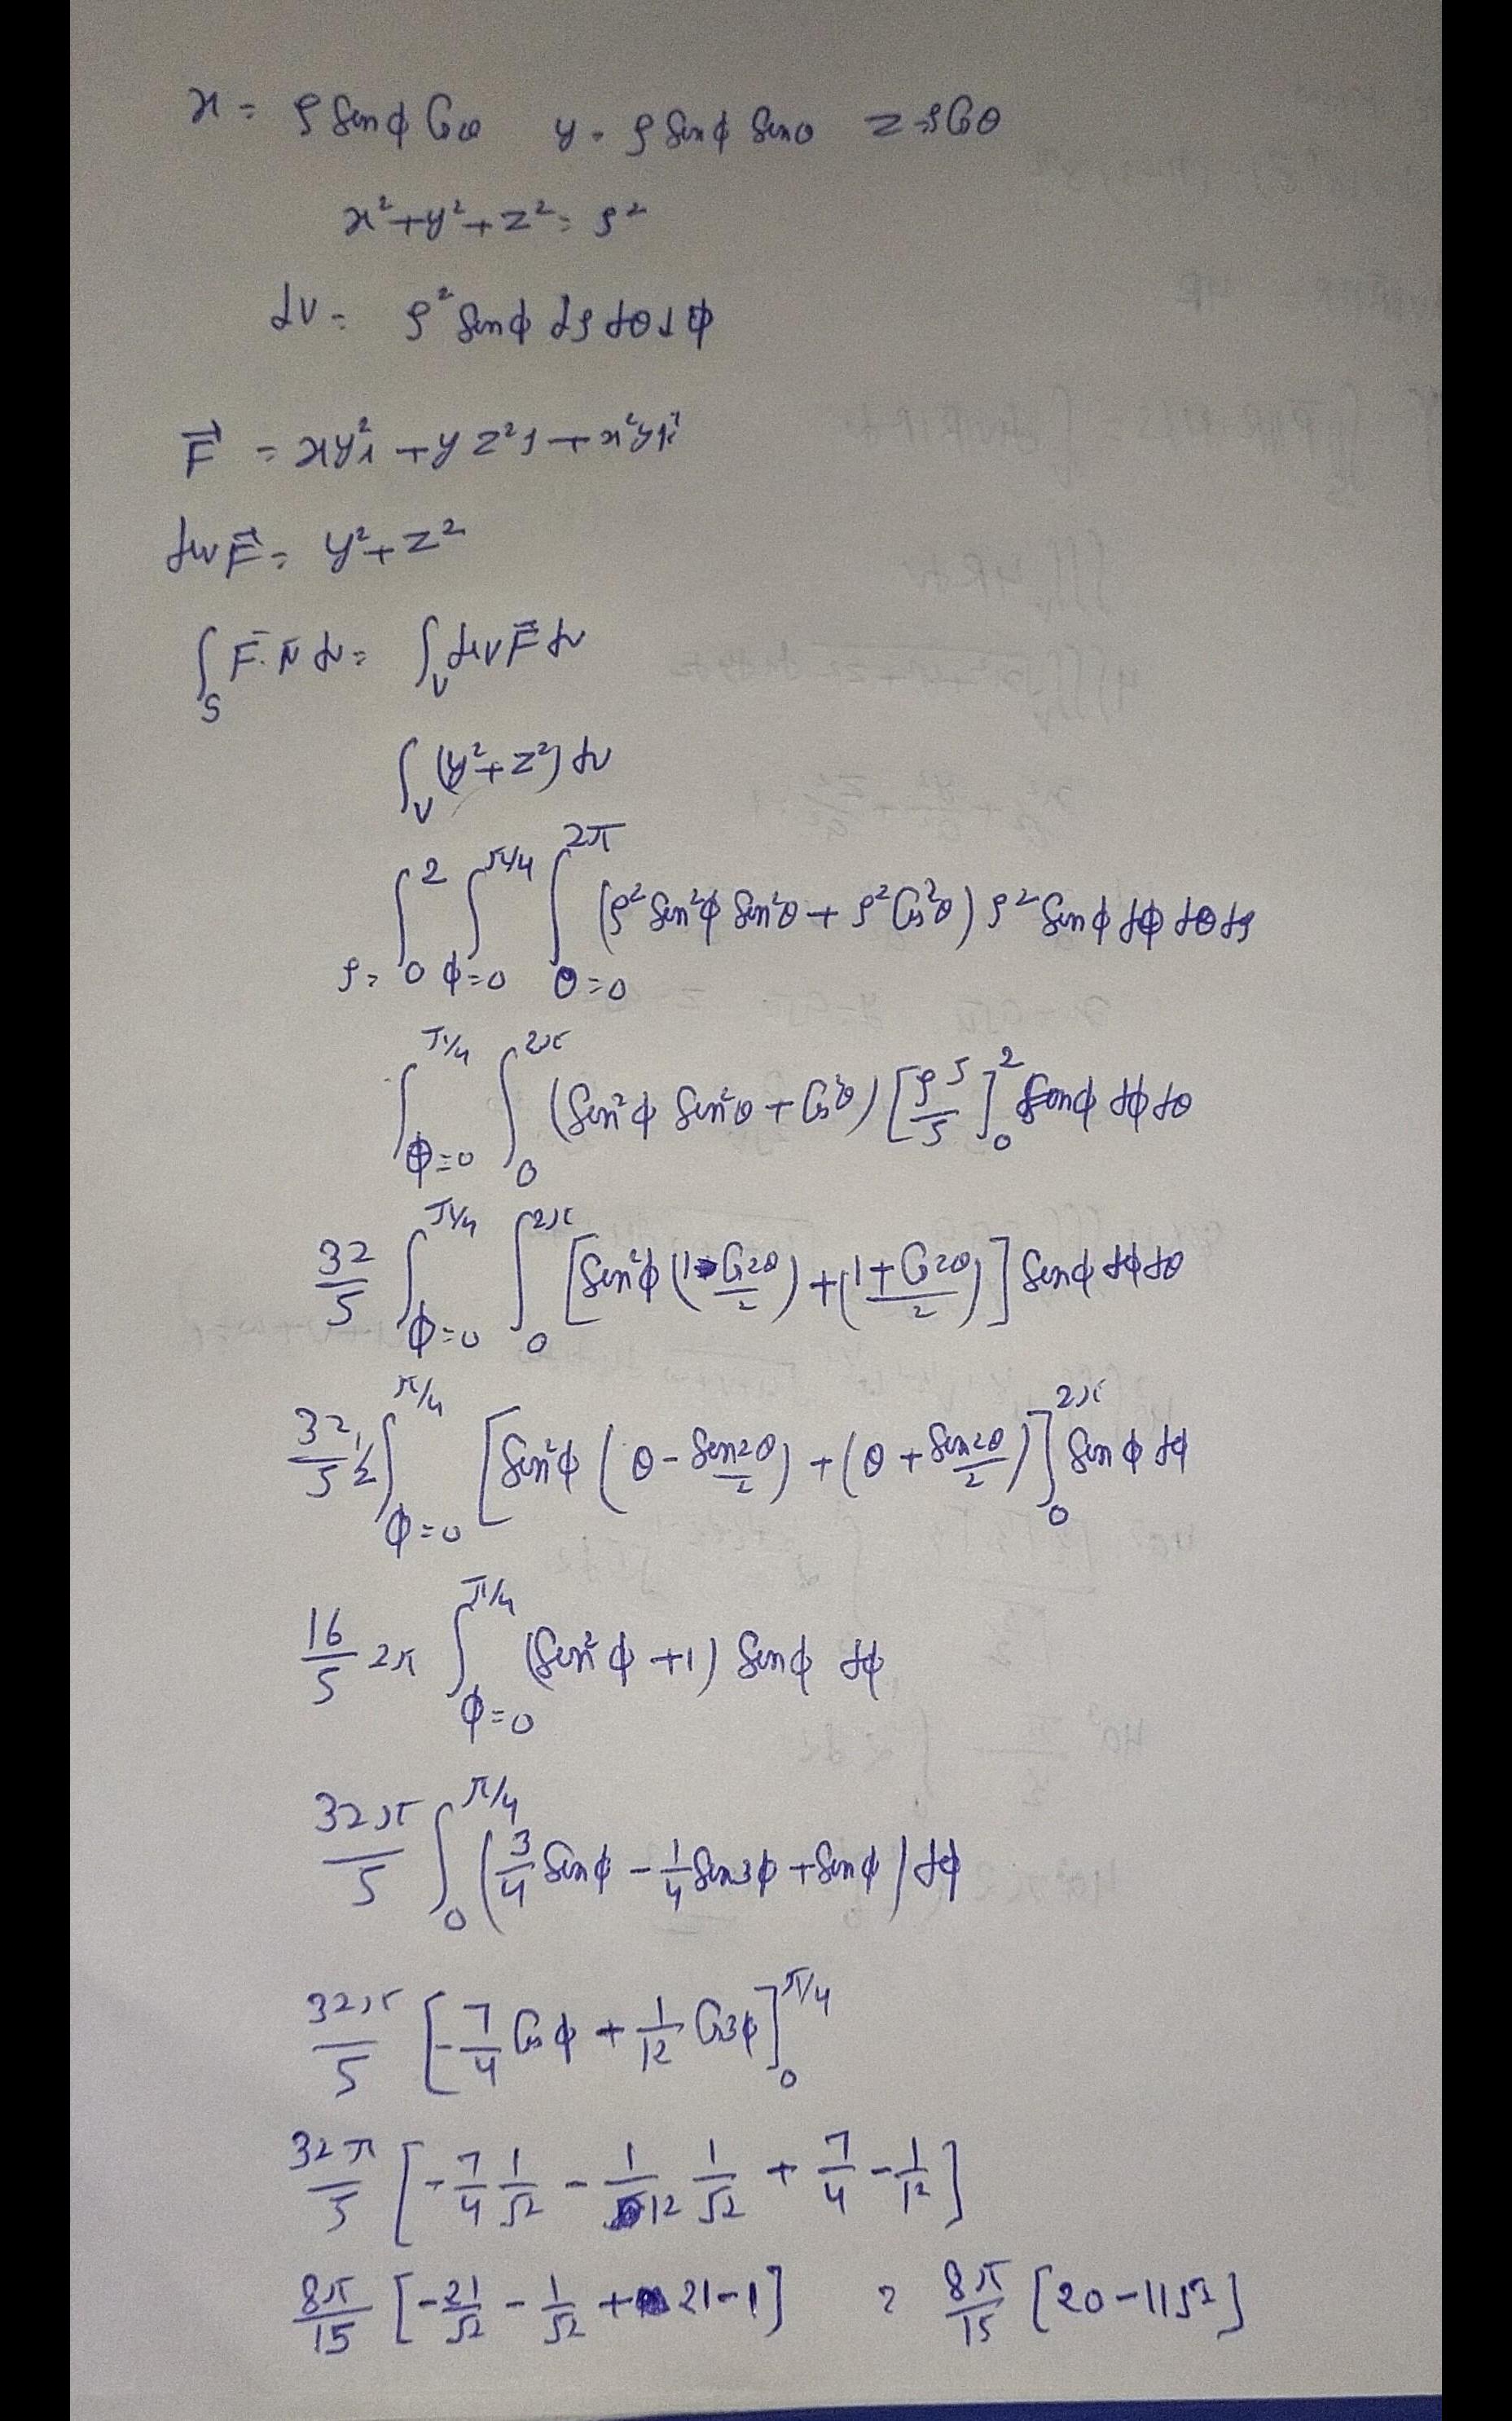 x = ρ Sin φ Cos θ   y = ρ Sin φ Sin θ   z = ρ Cos θ
x² + y² + z² = ρ²
dv = ρ² Sin φ dρ dθ dφ
F⃗ = xy² i + y z² j + x²y k⃗
div F⃗ = y² + z²
∫_S F̄. N̄ ds = ∫_V div F⃗ dv
∫_V (y² + z²) dv
∫_{ρ=0}^{2} ∫_{φ=0}^{π/4} ∫_{θ=0}^{2π} (ρ² Sin²φ Sin²θ + ρ² Cos²θ) ρ² Sin φ dφ dθ dρ
∫_{φ=0}^{π/4} ∫_{0}^{2π} (Sin²φ Sin²θ + Cos²θ) [ρ⁵/5]_0^2 Sin φ dφ dθ
32/5 ∫_{φ=0}^{π/4} ∫_{0}^{2π} [Sin²φ ((1 - Cos 2θ)/2) + ((1 + Cos 2θ)/2)] Sin φ dφ dθ
32/5 1/2 ∫_{φ=0}^{π/4} [Sin²φ (θ - Sin 2θ/2) + (θ + Sin 2θ/2)]_0^{2π} Sin φ dφ
16/5 2π ∫_{φ=0}^{π/4} (Sin²φ + 1) Sin φ dφ
32π/5 ∫_0^{π/4} (3/4 Sin φ - 1/4 Sin 3φ + Sin φ) dφ
32π/5 [-7/4 Cos φ + 1/12 Cos 3φ]_0^{π/4}
32π/5 [-7/4 1/√2 - 1/12 1/√2 + 7/4 - 1/12]
8π/15 [-21/√2 - 1/√2 + 21 - 1] = 8π/15 [20 - 11√2]